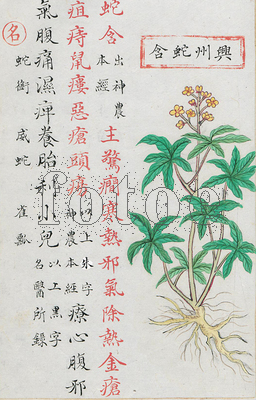 興州蛇含
蛇含 出神農本經 主驚癇寒熱邪氣除熱金瘡
疽痔鼠瘻惡瘡頭瘍 以上朱字神農本經 療心腹邪
氣腹痛濕痺養胎利小兒 以上黑字名醫所錄
名 蛇銜 威蛇 雀瓢